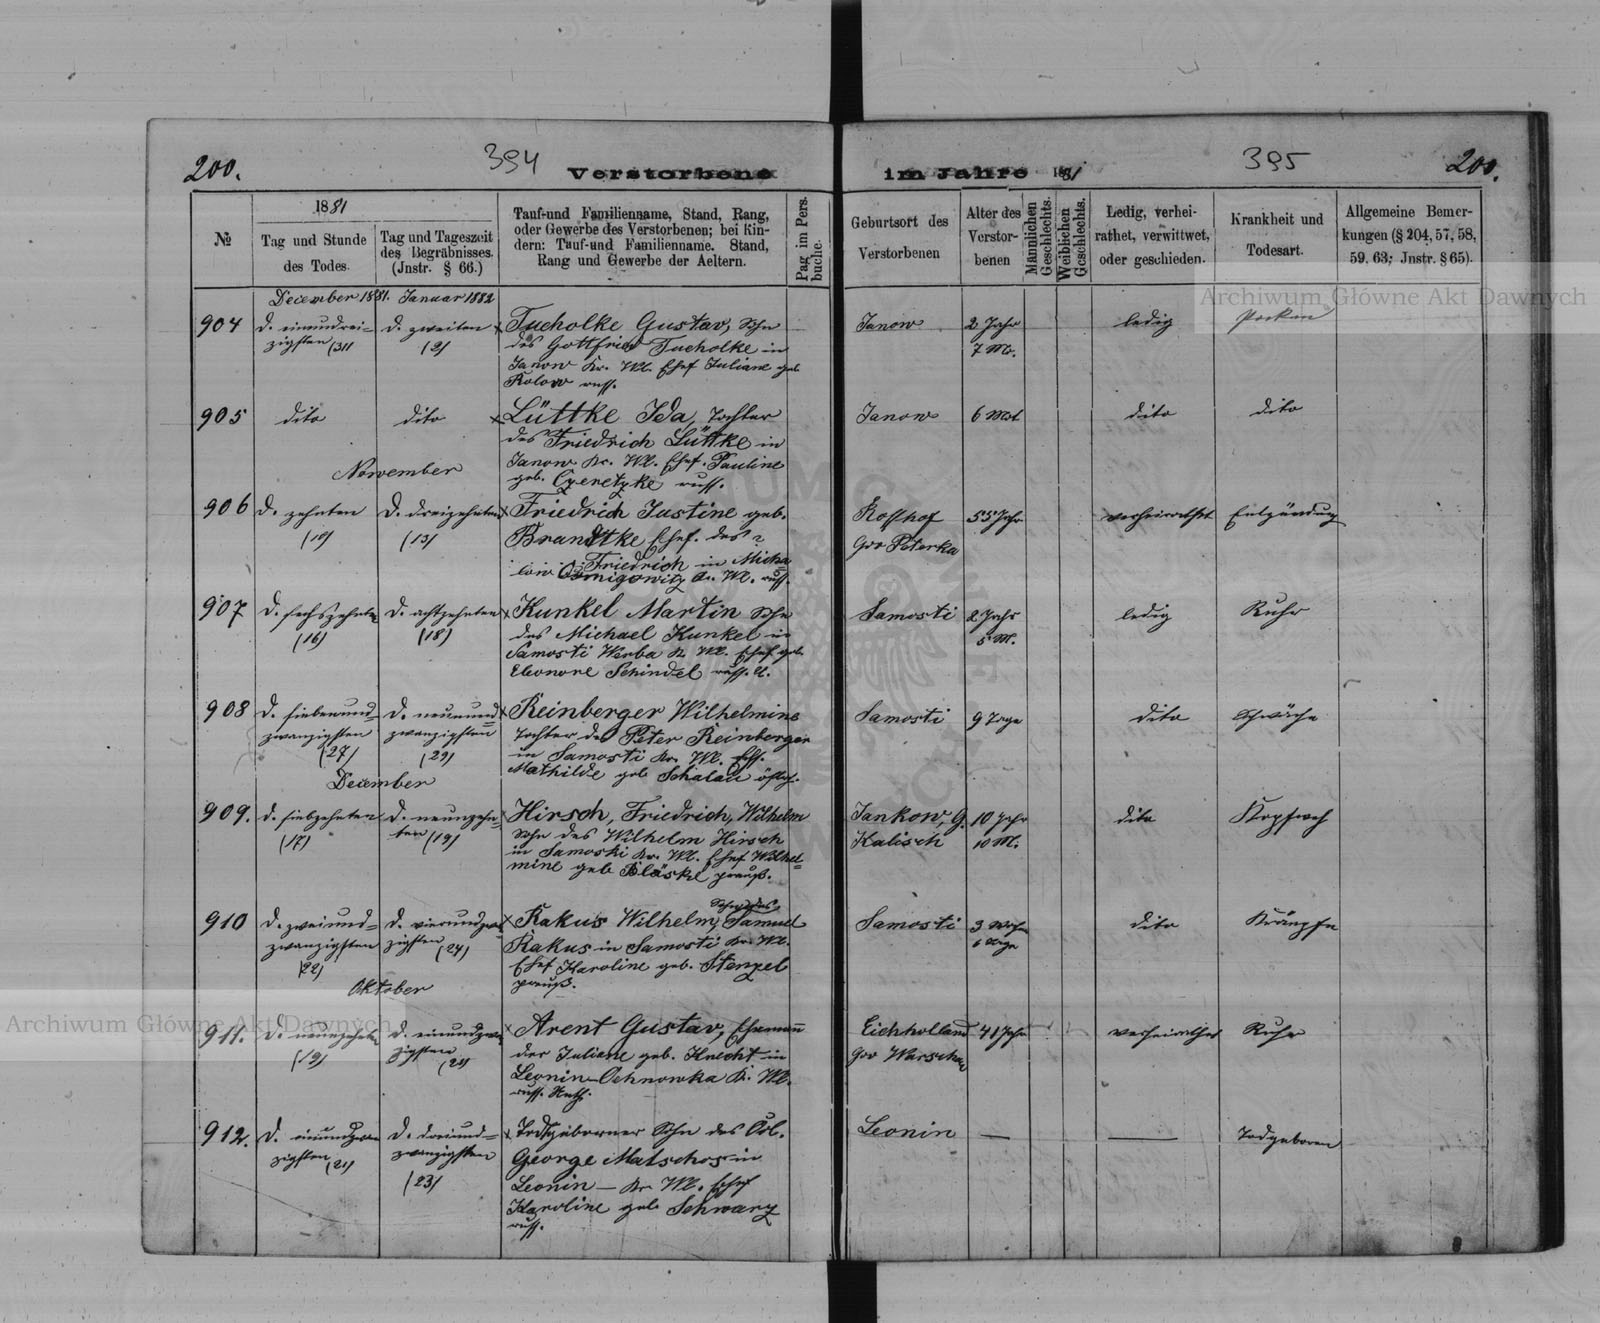 200.
394
Verstorbene
im Jahre 1881
395
200.
№
1881
Tag und Stunde
des Todes.
Tag und Tageszeit
des Begräbnisses.
(Jnstr. § 66.)
Tauf-und Familienname, Stand, Rang,
oder Gewerbe des Verstorbenen; bei Kin-
dern: Tauf-und Familienname. Stand,
Rang und Gewerbe der Aeltern.
Pag im Pers.
buche.
Geburtsort des
Verstorbenen
Alter des
Verstor-
benen
Männlichen
Geschlechts.
Weiblichen
Geschlechts.
Ledig, verhei-
rathet, verwittwet,
oder geschieden.
Krankheit und
Todesart.
Allgemeine Bemer-
kungen (§ 204, 57, 58,
59, 63; Jnstr. § 65).
December 1881. Januar 1882
904
d. einundrei-
zigsten (31)
d. zweiten
(2)
Tucholke Gustav, Sohn
des Gottfried Tucholke in
Janow Kr. Wl. Ehef Juliane geb
Rolow russ.
Janow
2 Jahr
7 Mt.
ledig
Pocken
905
dito
dito
Lüttke Ida, Tochter
des Friedrich Lüttke in
Janow Kr. Wl. Ehef. Pauline
geb. Czeretzke russ.
Janow
6 Mot
dito
dito
November
906
d. zehnten
(10)
d. dreizehnten
(13)
Friedrich Justine geb.
Brandtke Ehef. des
Friedrich in Micha
low Kr. Wl. russ.
Rosshof
Gov Peterka
55 Jahr
verheirathet
Entzündung
907
d. sechszehnten
(16)
d. achtzehnten
(18)
Kunkel Martin Sohn
des Michael Kunkel in
Samosti Werba K. Wl. Ehef geb
Eleonore Schindel russ. U.
Samosti
2 Jahr
5 M.
ledig
Ruhr
908
d. siebenund-
zwanzigsten
(27)
d. neunund-
zwanzigsten
(29)
Reinberger Wilhelmine
Tochter des Peter Reinberger
in Samosti Kr. Wl. Ehf.
Mathilde geb Schalau östch.
Samosti
9 Tage
dito
Schwäche
December
909.
d. siebzehnten
(17)
d. neunzehn-
ten (19)
Hirsch, Friedrich, Wilhelm
Sohn des Wilhelm Hirsch
in Samoski Kr. Wl. Ehef Wilhel-
mine geb Bläske preuß.
Jankow, G.
Kalisch
10 Jahr
10 M.
dito
Kopfweh
910
d. zweiund-
zwanzigsten
(22)
d. vierundzwan
zigsten (24)
Sohn des
Rakus Wilhelm, Samuel
Rakus in Samosti Kr. Wl.
Ehef Karoline geb. Stenzel
preuß.
Samosti
3 Woche
6 Tage
dito
Krämpfe
Oktober
911.
d. neunzehnten
(19)
d. einundzwan
zigsten (21)
Arent Gustav, Ehemann
der Juliane geb. Knecht in
Leonin-Ochnowka K. Wl.
russ. Unth.
Eichholland
Gov Warschau
41 Jahr
verheirathet
Ruhr
912.
d. einundzwan
zigsten (21)
d. dreiund-
zwanzigsten
(23)
Todtgeborner Sohn des
George Matschos in
Leonin - Kr. Wl. Ehef
Karoline geb Schwarz
russ.
Leonin
—
—
Todgeboren
Archiwum Główne Akt Dawnych
Archiwum Główne Akt Dawnych